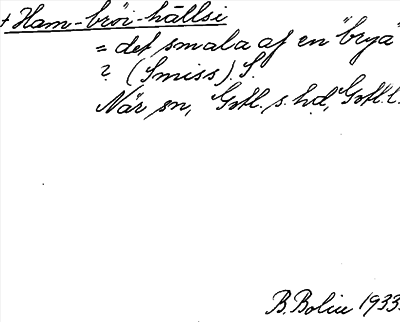 + Ham-bröi-hällsi
= det smala af en "brya"
? (Smiss). S.
När sn, Gotl. s. hd, Gotl. l.
B. Bolin 1933.